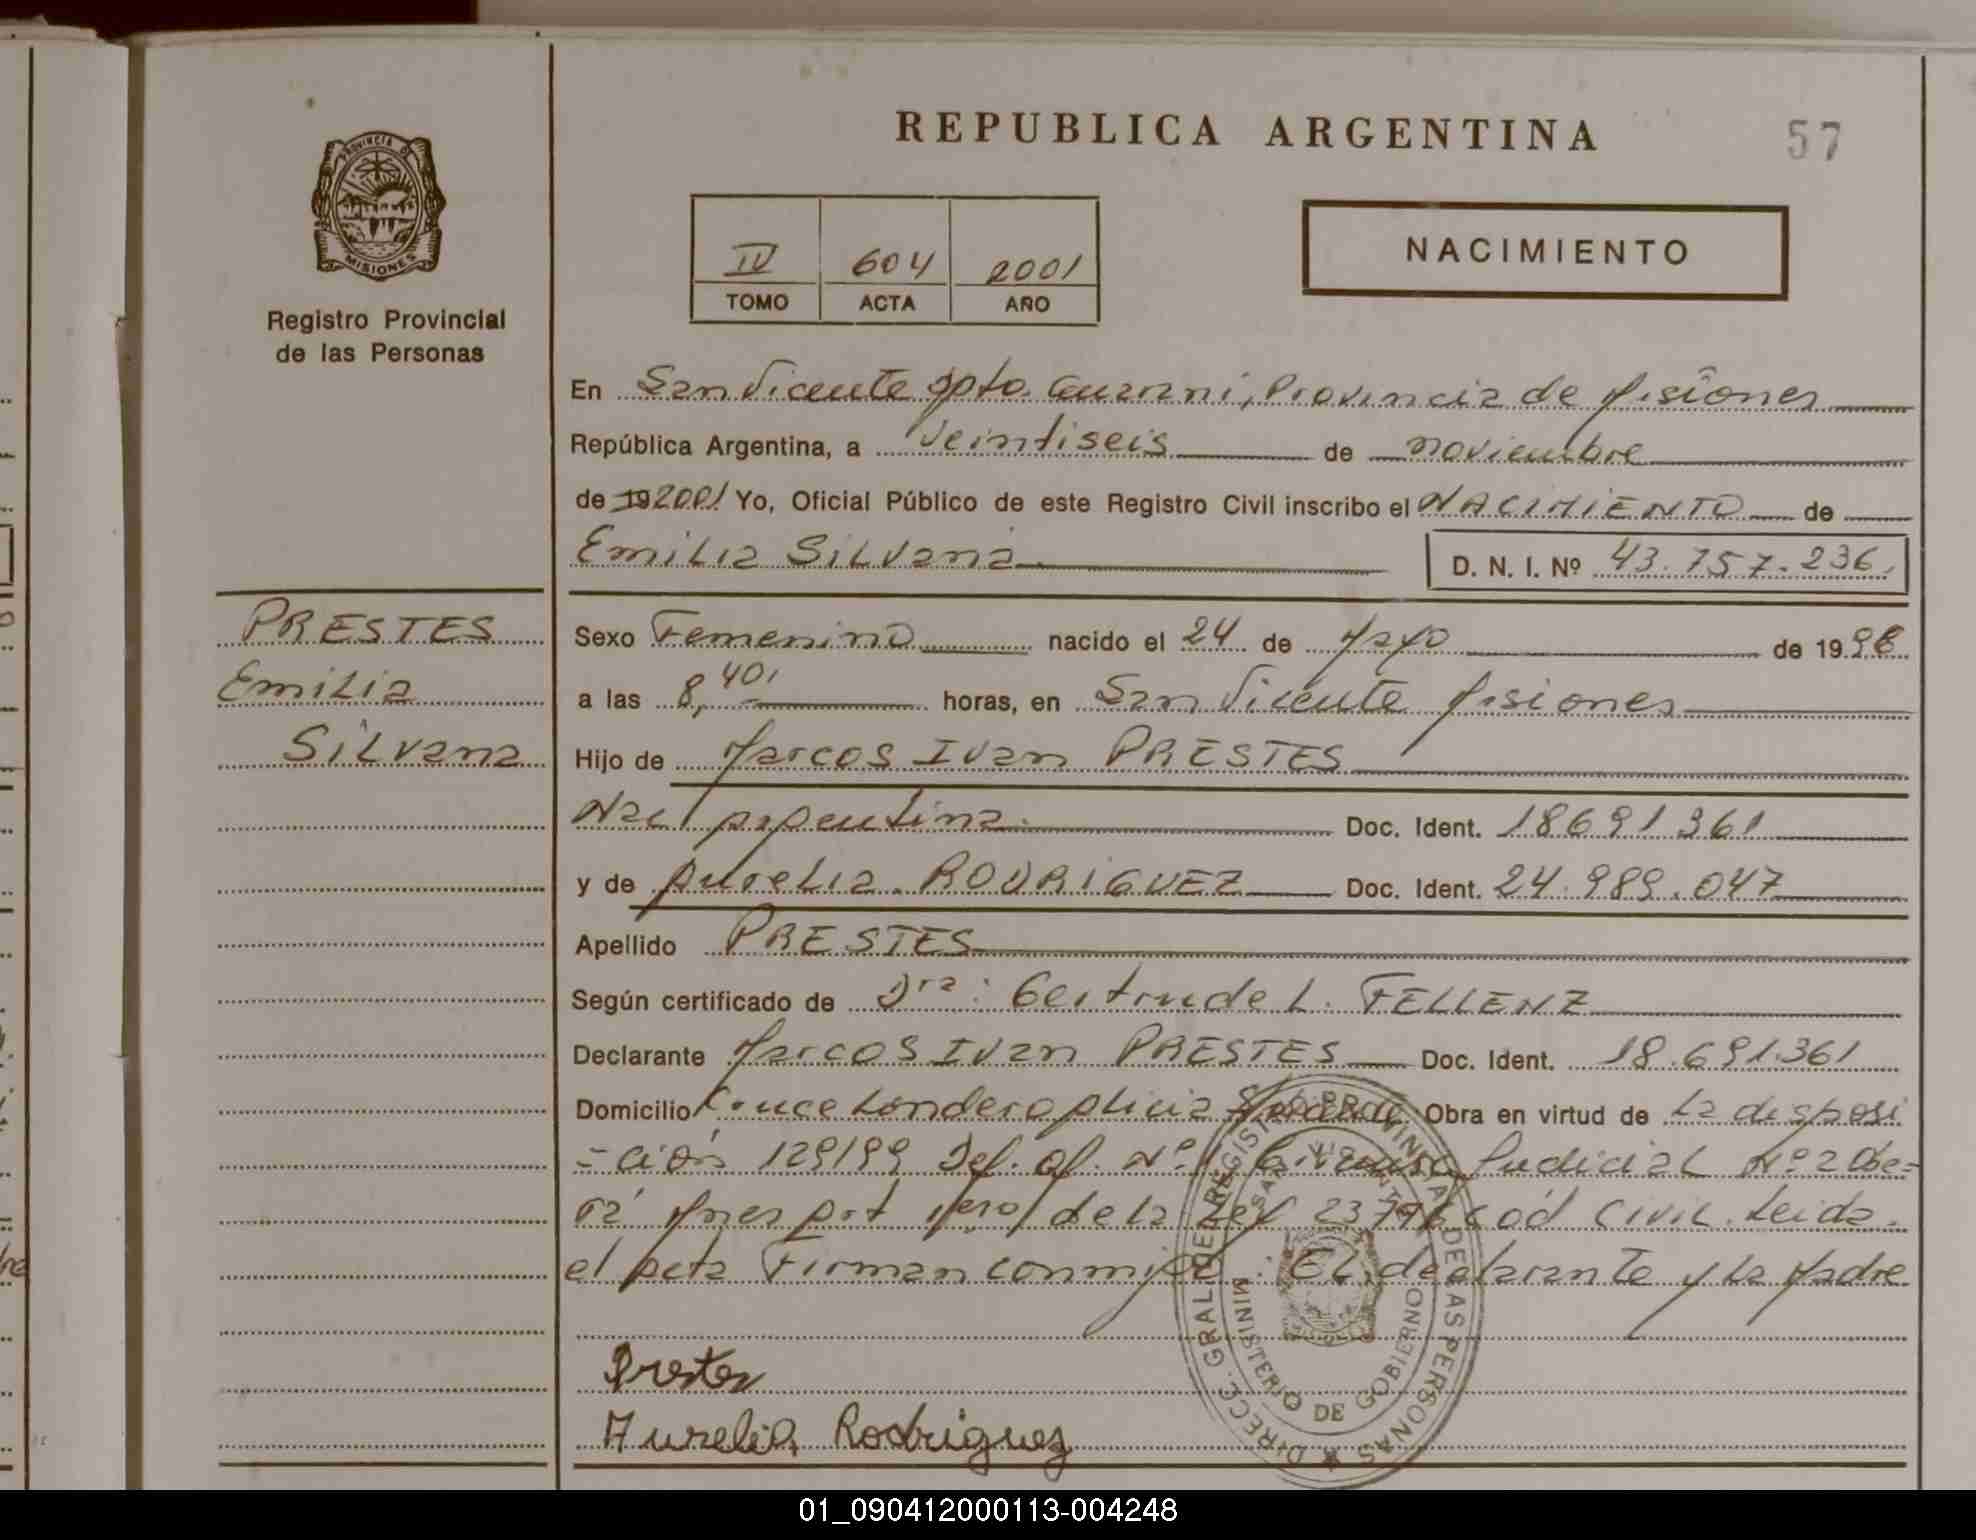 REPUBLICA ARGENTINA
57
PROVINCIA DE
MISIONES
Registro Provincial
de las Personas
IV 604 2001
TOMO ACTA AÑO
NACIMIENTO
En San Vicente Dpto. Guarani, Provincia de Misiones
República Argentina, a Veintiseis de noviembre
de 19 2001 Yo, Oficial Público de este Registro Civil inscribo el NACIMIENTO de
Emilia Silvana
D. N. I. Nº 43.757.236.
PRESTES
Emilia
Silvana
Sexo Femenino nacido el 24 de Mayo de 19 98
a las 8,40' horas, en San Vicente Misiones
Hijo de Marcos Ivan PRESTES
Nac Argentina Doc. Ident. 18691361
y de Aurelia RODRIGUEZ Doc. Ident. 24.989.047
Apellido PRESTES
Según certificado de Dra: Gertrude L. FELLENZ
Declarante Marcos Ivan PRESTES Doc. Ident. 18.691.361
Domicilio Cruce Londero Obra en virtud de la disposi
-ción 129/99 Def. Of. Nº 1 Judicial Nº 2 Obe-
rá Mnes Art 1ero de la Ley 23776 cód Civil. Leida
el Acta Firman conmigo: El declarante y la Madre
Prestes
Aurelia Rodriguez
DIRECC. GRAL. DEL REGISTRO PROVINCIAL DE LAS PERSONAS
SAN VICENTE
MINISTERIO DE GOBIERNO
01_090412000113-004248